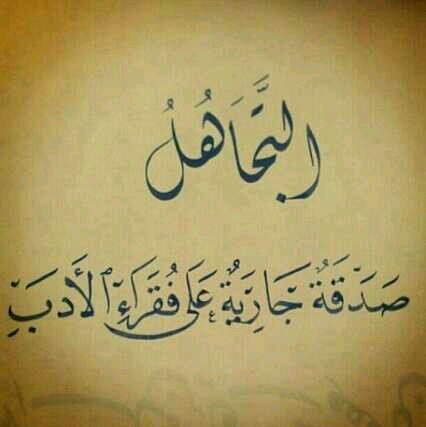 التَّجَاهُلُ
صَدَقَةٌ جَارِيَةٌ عَلَى فُقَرَاءِ ٱلأَدَبِ